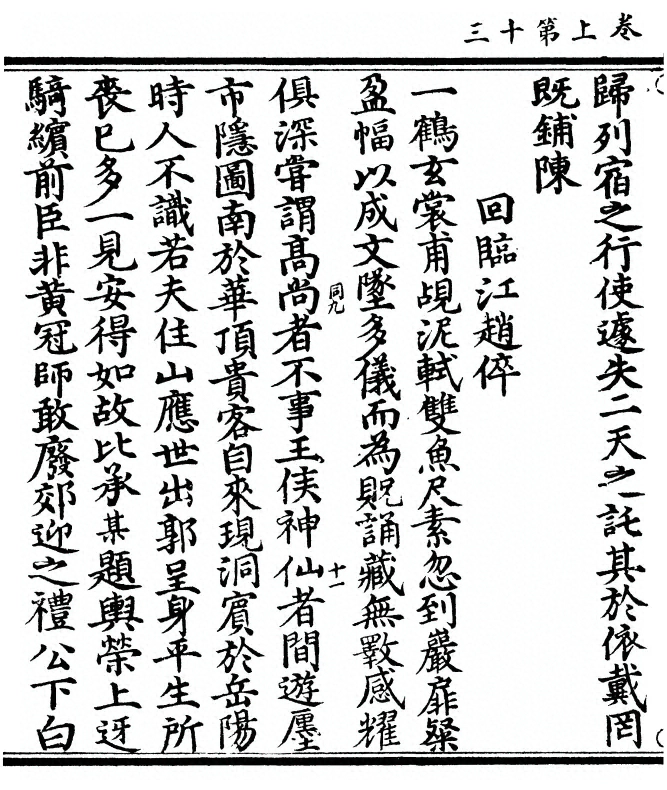 卷上第十三
歸列宿之行使遽失二天之託其於依戴罔
既鋪陳
回臨江趙倅
一鶴玄裳甫覘泥軾雙魚尺素忽到巖扉粲
盈幅以成文墜多儀而為貺誦藏無斁感耀
俱深甞謂髙尚者不事王侯神仙者間遊廛
同九
十一
市隱圖南於華頂貴客自來現洞賓於岳陽
時人不識若夫住山應世出郭呈身平生所
喪已多一見安得如故比承某題輿榮上迓
騎繽前臣非黄冠師敢廢郊迎之禮公下白